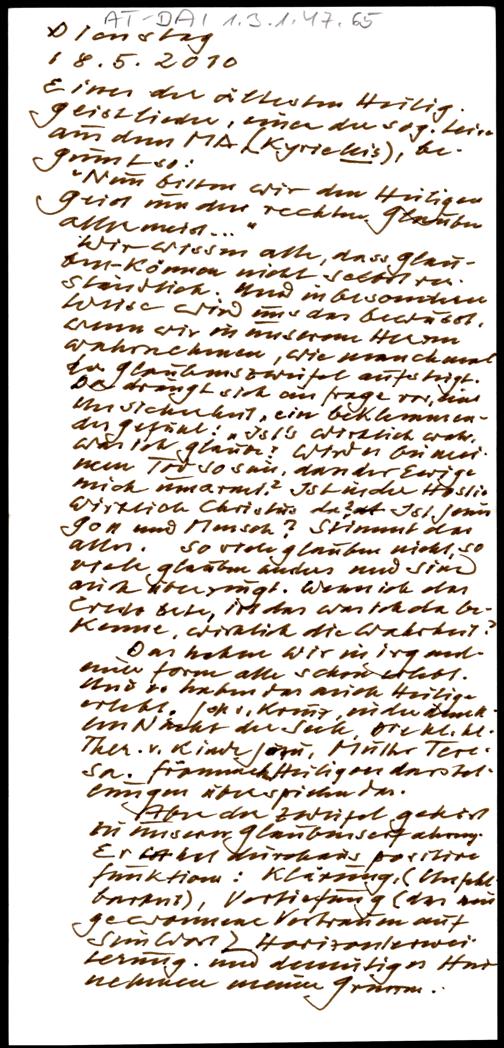 AT-DAI 1.3.1.47.65
Dienstag
18.5.2010
Eines der ältesten Heilig-
geistlieder, eines der sog. Leise
aus dem MA (Kyrieleis), be-
ginnt so:
"Nun bitten wir den Heiligen
Geist um den rechten Glauben
allermeist..."
Wir wissen alle, dass Glau-
ben-Können nicht selbstver-
ständlich. Und in besonderer
Weise wird uns das bewusst,
wenn wir in unserem Herzen
wahrnehmen, wie manchmal
der Glaubenszweifel aufsteigt.
Da drängt sich eine Frage vor, eine
Unsicherheit, ein beklemmen-
des Gefühl: "Ist's wirklich wahr,
was ich glaube? Wird es bei mei-
nem Tod so sein, dass der Ewige
mich umarmt? Ist in der Hostie
wirklich Christus da? Ist Jesus
Gott und Mensch? Stimmt das
alles. So viele glauben nicht, so
viele glauben anders und sind
auch überzeugt. Wenn ich das
Credo bete, ist das was ich da be-
kenne, wirklich die Wahrheit?
Das haben wir in irgend-
einer Form alle schon erlebt.
Und so haben das auch Heilige
erlebt. Joh. v. Kreuz, in der dunk-
len Nacht der Seele, die kl. hl.
Ther. v. Kinde Jesu, Mutter Tere-
sa. Heiligendarstel-
lungen übersp das.
Aber der Zweifel gehört
zu unserer Glaubenserfahrung.
Er hat durchaus positive
Funktion: Klärung,
Vertiefung (das neu
gewonnene Vertrauen auf
Sein Wort) Horizonterwei-
terung. und demütiges
nehmen meiner Grenzen.